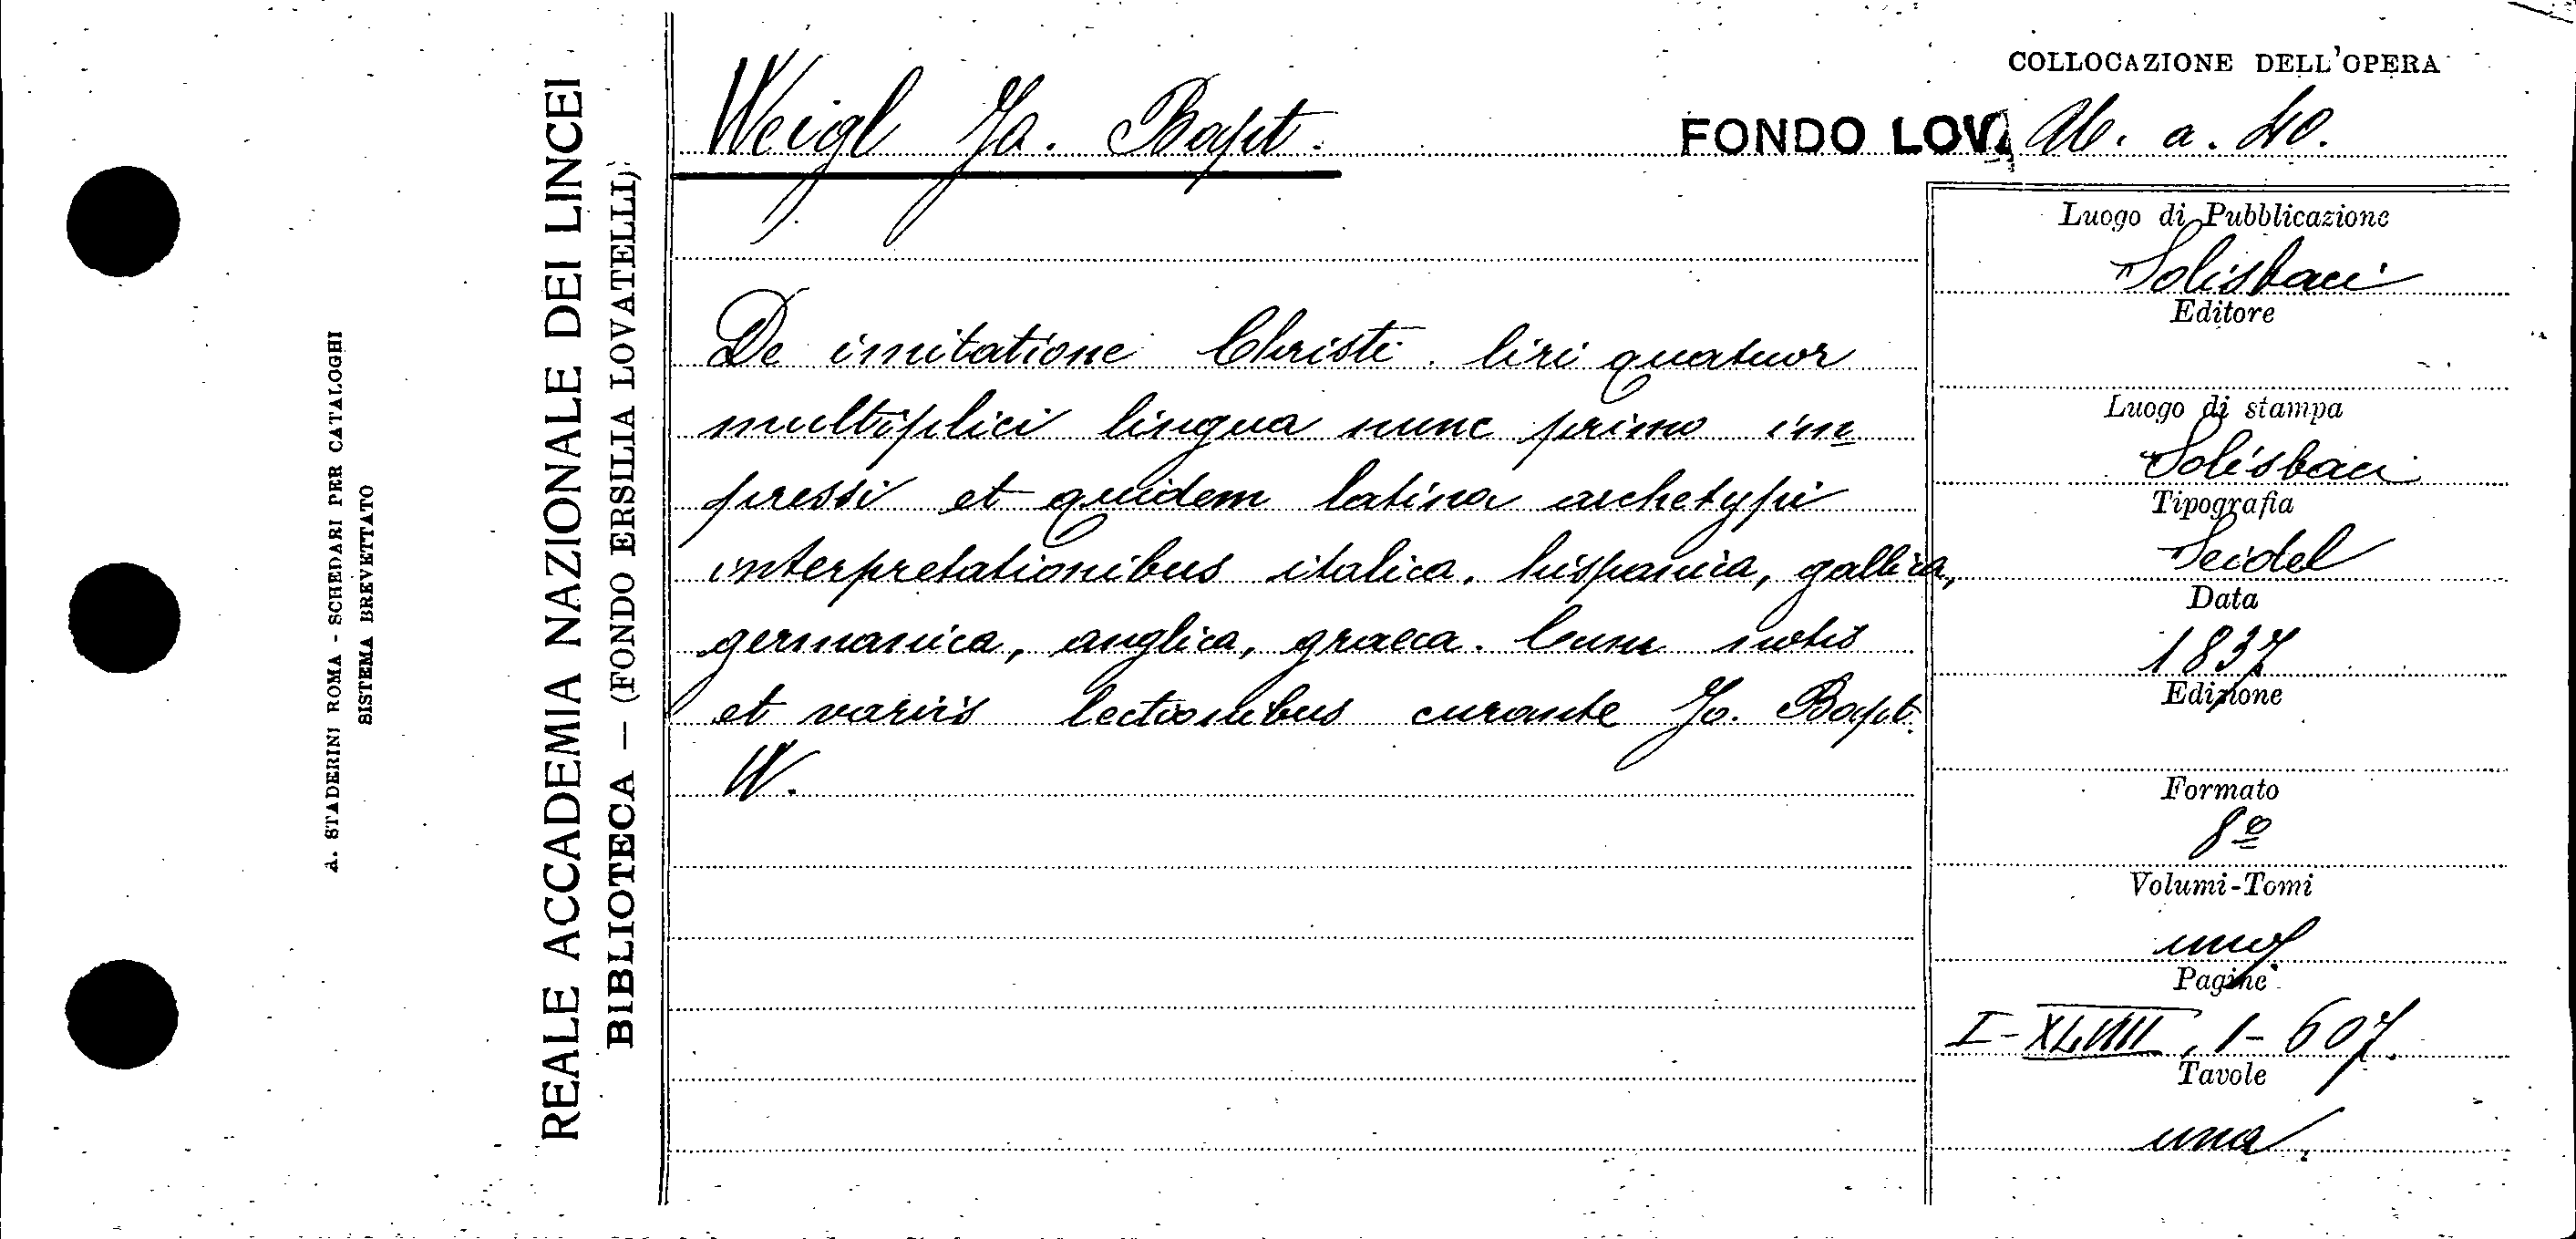 A. STADERINI ROMA - SCHEDARI PER CATALOGHI
SISTEMA BREVETTATO
REALE ACCADEMIA NAZIONALE DEI LINCEI
BIBLIOTECA — (FONDO ERSILIA LOVATELLI)
Weigl Jo. Bapt.
FONDO LOV
COLLOCAZIONE DELL'OPERA
a. 40.
De imitatione Christi. liri quatuor
multiplici lingua nunc primo im
pressi et quidem latina archetypi
interpretationibus italica, hispanica, gallica,
germanica, anglica, graeca. Cum notis
et variis lectionibus curante Jo. Bapt.
W.
Luogo di Pubblicazione
Solisbaci
Editore
Luogo di stampa
Solisbaci
Tipografia
Seidel
Data
1837
Edizione
Formato
8º
Volumi-Tomi
uno
Pagine
I-XLVIII, 1-607.
Tavole
una.